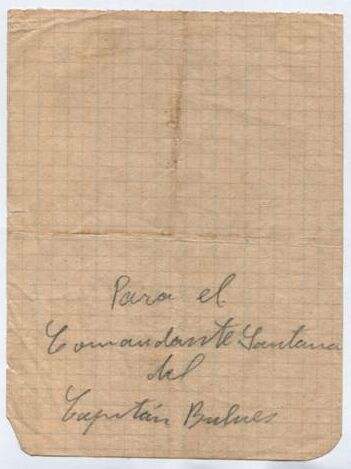 Para el
Comandante Santana
del
Capitán Bulnes